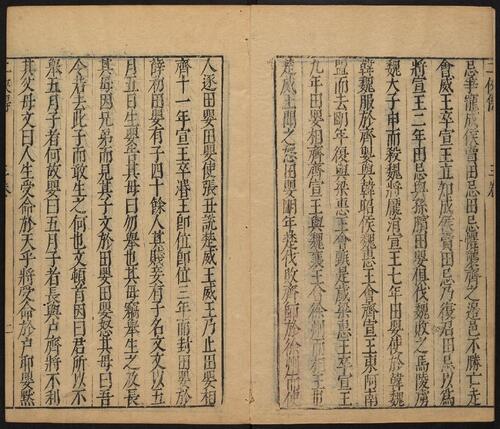 忌爭寵成侯賣田忌田忌懼襲齊之邊邑不勝亡走
會威王卒宣王立知成侯賣田忌乃復召田忌以為
將宣王二年田忌與孫臏田嬰俱伐魏敗之馬陵虜
魏太子申而殺魏將龐涓宣王七年田嬰使於韓魏
韓魏服於齊嬰與韓昭侯魏惠王會齊宣王東阿南
盟而去明年復與梁惠王會甄是歲梁惠王卒宣王
九年田嬰相齊齊宣王與魏襄王會徐州而相王也
楚威王聞之怒田嬰明年楚伐敗齊師於徐州而使
人逐田嬰田嬰使張丑說楚威王威王乃止田嬰相
齊十一年宣王卒湣王即位即位三年而封田嬰於
薛初田嬰有子四十餘人其賤妾有子名文文以五
月五日生嬰告其母曰勿舉也其母竊舉生之及長
其母因兄弟而見其子文於田嬰田嬰怒其母曰吾
令若去此子而敢生之何也文頓首因曰君所以不
舉五月子者何故嬰曰五月子者長與戶齊將不利
其父母文曰人生受命於天乎將受命於戶邪嬰默